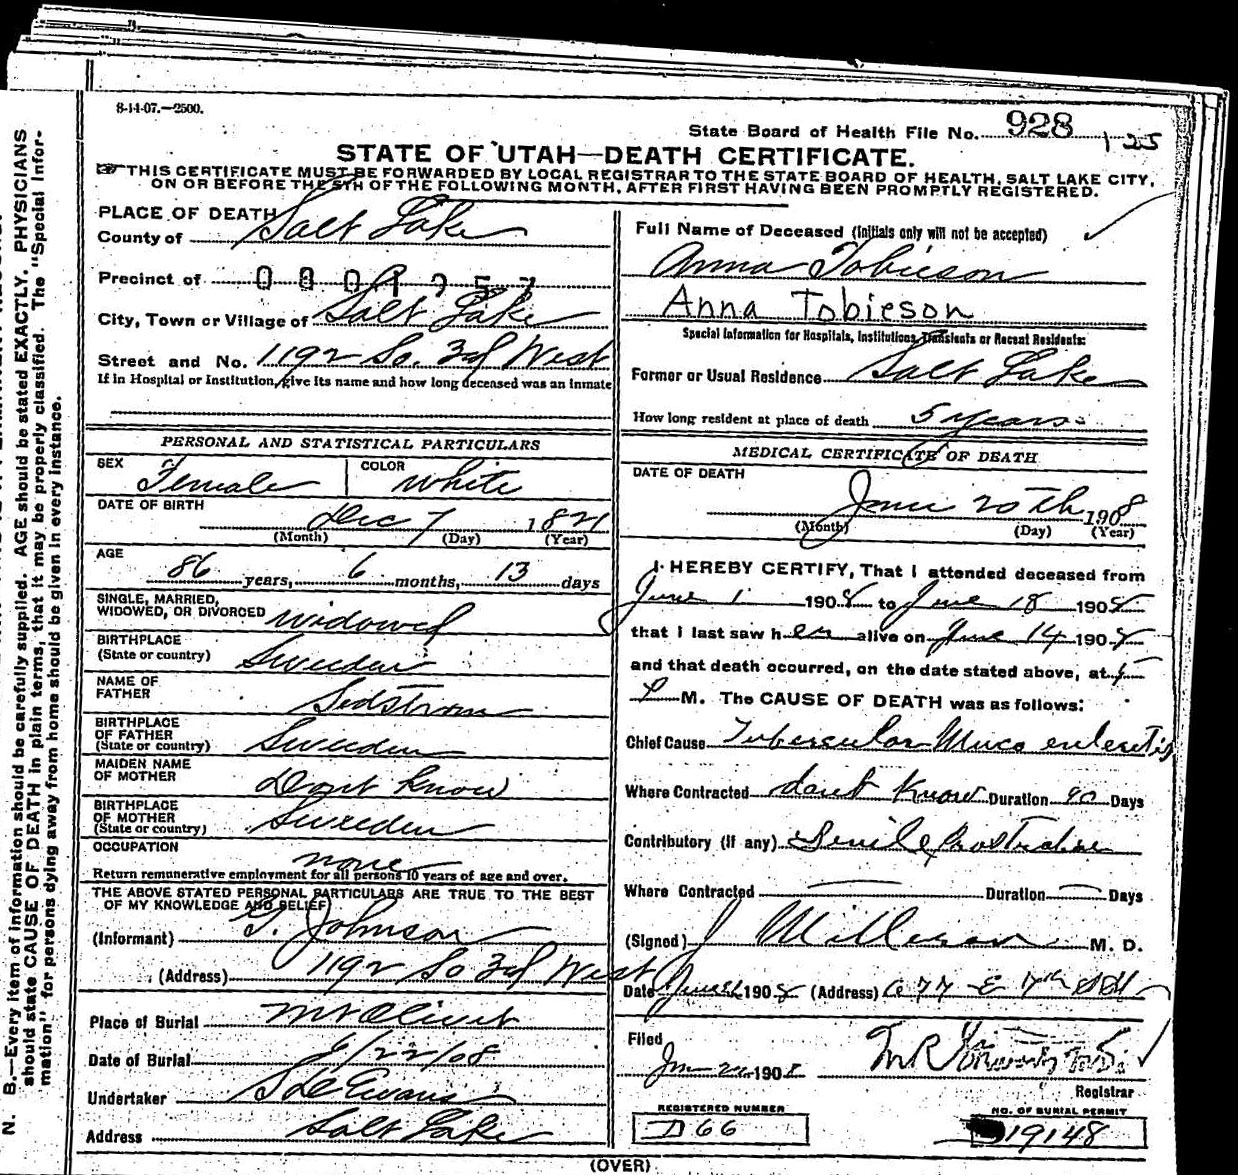 8-14-07.—2500.
State Board of Health File No. 928
125
STATE OF UTAH—DEATH CERTIFICATE.
THIS CERTIFICATE MUST BE FORWARDED BY LOCAL REGISTRAR TO THE STATE BOARD OF HEALTH, SALT LAKE CITY,
ON OR BEFORE THE 5TH OF THE FOLLOWING MONTH, AFTER FIRST HAVING BEEN PROMPTLY REGISTERED.
PLACE OF DEATH
County of Salt Lake
Precinct of
City, Town or Village of Salt Lake
Street and No. 1192 So. 3d West
If in Hospital or Institution, give its name and how long deceased was an inmate
PERSONAL AND STATISTICAL PARTICULARS
SEX Female
COLOR white
DATE OF BIRTH Dec 7 1821
(Month) (Day) (Year)
AGE
86 years, 6 months, 13 days
SINGLE, MARRIED,
WIDOWED, OR DIVORCED widowed
BIRTHPLACE
(State or country) Sweeden
NAME OF
FATHER Sedstrom
BIRTHPLACE
OF FATHER
(State or country) Sweeden
MAIDEN NAME
OF MOTHER Dont know
BIRTHPLACE
OF MOTHER
(State or country) Sweeden
OCCUPATION none
Return remunerative employment for all persons 10 years of age and over.
THE ABOVE STATED PERSONAL PARTICULARS ARE TRUE TO THE BEST
OF MY KNOWLEDGE AND BELIEF
(Informant) Johnson
(Address) 1192 So 3d West
Place of Burial Mt Olivet
Date of Burial 6/22/08
Undertaker Evans
Address Salt Lake
Full Name of Deceased (Initials only will not be accepted)
Anna Tobieson
Anna Tobieson
Special Information for Hospitals, Institutions, Transients or Recent Residents:
Former or Usual Residence Salt Lake
How long resident at place of death 5 years
MEDICAL CERTIFICATE OF DEATH
DATE OF DEATH
June 20th 1908
(Month) (Day) (Year)
I HEREBY CERTIFY, That I attended deceased from
June 1 1908 to June 18 1908
that I last saw her alive on June 14 1908
and that death occurred, on the date stated above, at 5
P M. The CAUSE OF DEATH was as follows:
Chief Cause Tubercular Muco enteretis
Where Contracted dont know Duration 90 Days
Contributory (if any) Senile Prostration
Where Contracted — Duration — Days
(Signed) J M. D.
Date June 21 1908 (Address) 677 E 7th
Filed
1908
Registrar
REGISTERED NUMBER
D 66
NO. OF BURIAL PERMIT
19148
(OVER)
N. B.—Every item of information should be carefully supplied. AGE should be stated EXACTLY. PHYSICIANS
should state CAUSE OF DEATH in plain terms, that it may be properly classified. The "Special Infor-
mation" for persons dying away from home should be given in every instance.